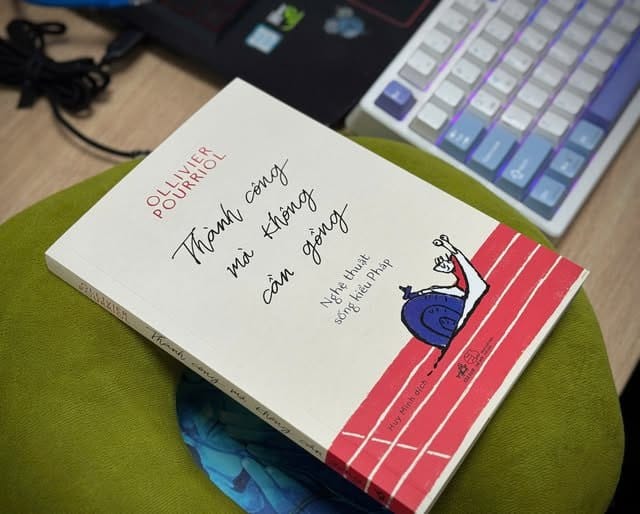 OLLIVIER
POURRIOL
Thành công
mà không
cần gồng
Nghệ thuật
sống kiểu Pháp
Huy Minh dịch
OLLIVIER
POURRIOL
Thành công mà không cần